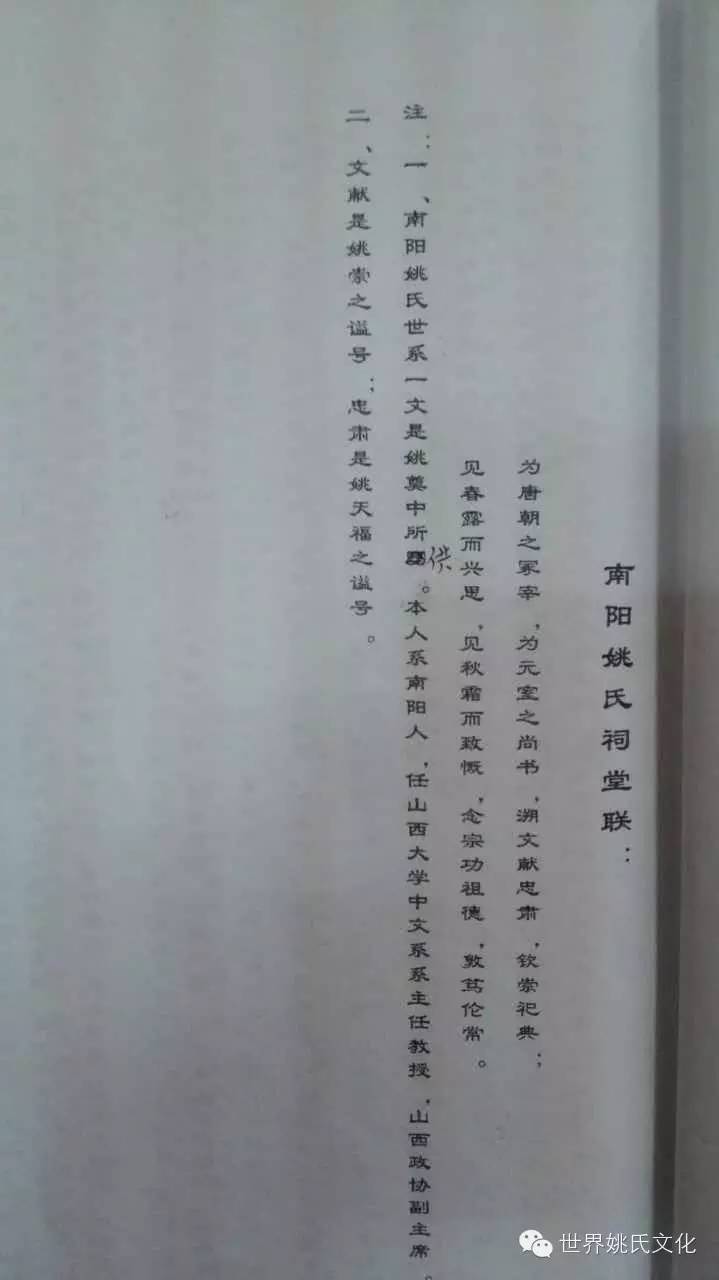 南阳姚氏祠堂联：
为唐朝之冢宰，为元室之尚书，溯文献忠肃，钦崇祀典；
见春露而兴思，见秋霜而致慨，念宗功祖德，敦笃伦常。
注：一、南阳姚氏世系一文是姚奠中所供。本人系南阳人，任山西大学中文系系主任教授，山西政协副主席。
二、文献是姚崇之谥号；忠肃是姚天福之谥号。
世界姚氏文化